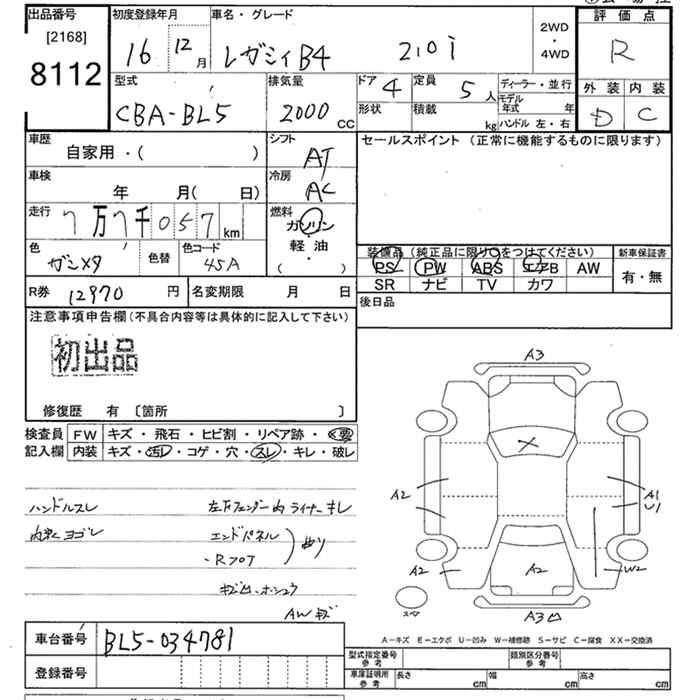 出品番号 初度登録年月 車名・グレード 2WD・4WD 評価点
[2168] 8112 16 12月 レガシィB4 2.0i R
型式 排気量 ドア 4 定員 5人 ディーラー・並行 外装 内装
CBA-BL5 2000cc 形状 積載 kg モデル年式 年 ハンドル 左・右 D C
車歴 シフト セールスポイント (正常に機能するものに限ります)
自家用・( ) AT
車検 年 月( 日) 冷房 AC
走行 7万7千057km 燃料 ガソリン
軽・油
( ・ )
色 ガンメタ 色替 色コード 45A
装備品 (純正品に限り○をつけてください) 新車保証書
PS PW ABS エアB AW 有・無
SR ナビ TV カワ
R券 12970円 名変期限 月 日 後日品
注意事項申告欄(不具合内容等は具体的に記入して下さい)
初出品
修復歴 有 〔箇所 〕
検査員 FW キズ・飛石・ヒビ割・リペア跡・要
記入欄 内装 キズ・汚レ・コゲ・穴・スレ・キレ・破レ
ハンドルスレ 左Fフェンダー内ライナーキレ
内張ヨゴレ エンドパネル
・Rフロア 曲り
AWキズ
A3
X
A2 A1
U1
A2 A2 W2
スペア A3凹
A-キズ E-エクボ U-凹み W-補修跡 S-サビ C-腐食 XX-交換済
車台番号 BL5-034781
登録番号
型式指定番号 参考 類別区分番号 参考
車庫証明用 参考 長さ cm 幅 cm 高さ cm